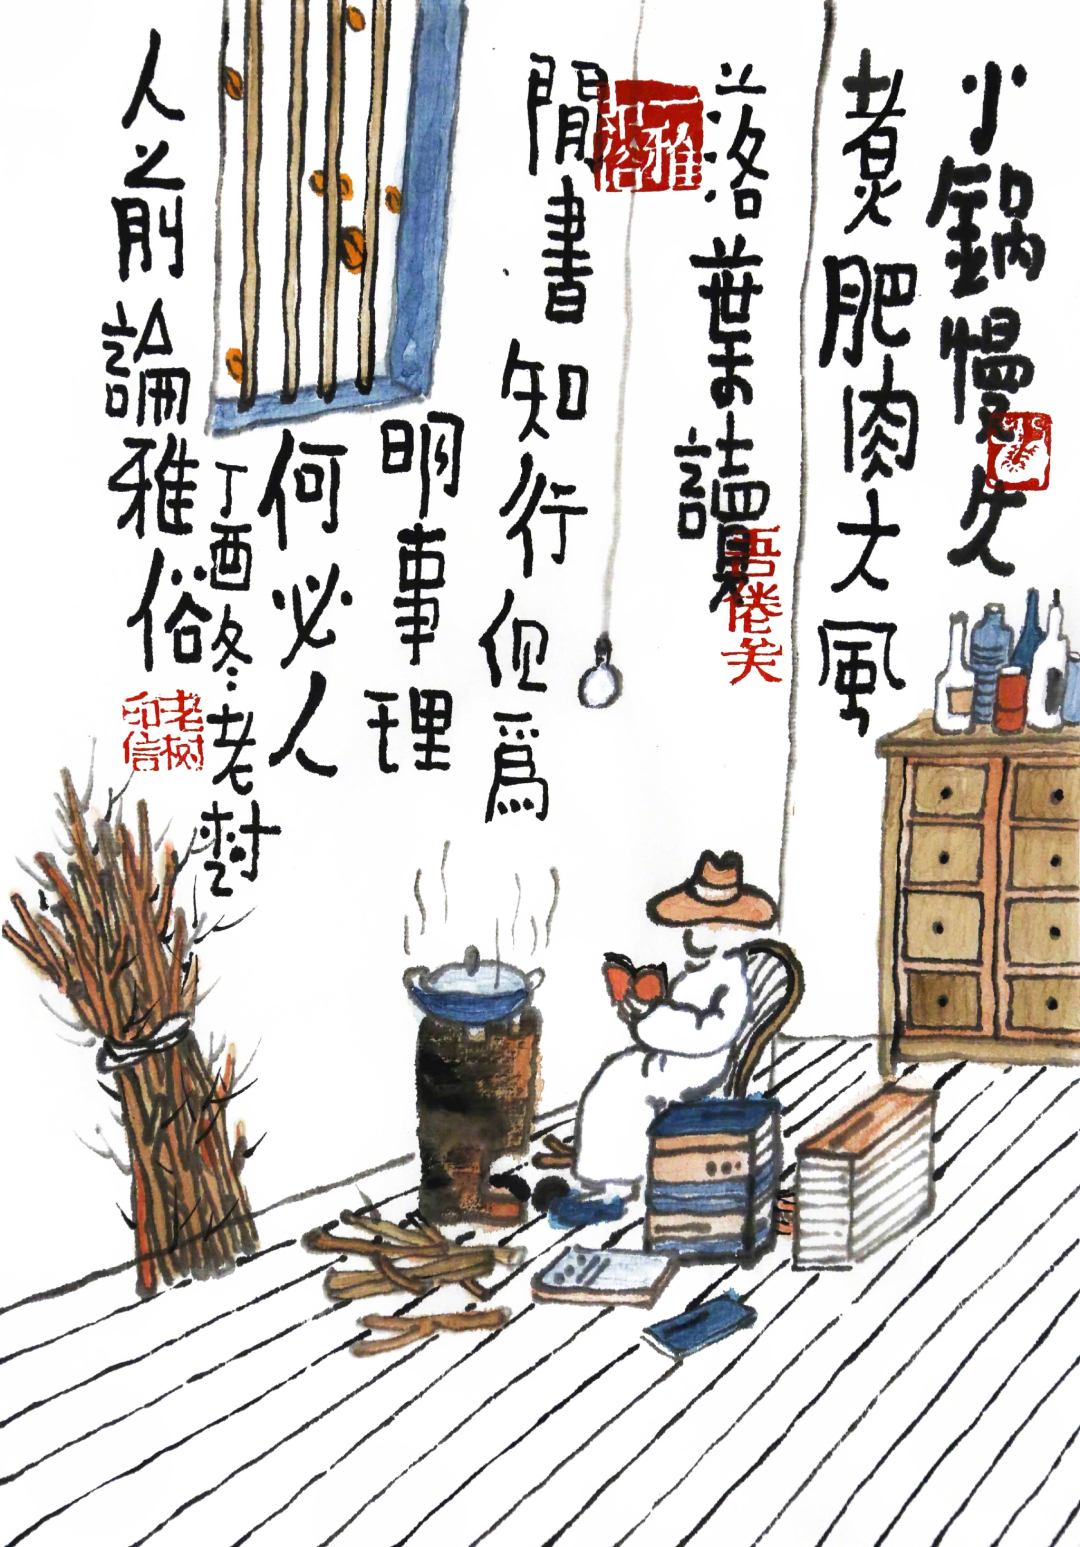 小鍋慢火
煮肥肉大風
落葉讀
閒書知行但爲
明事理
何必人
人之前論雅俗
丁酉冬老樹
吾倦矣
老树印信